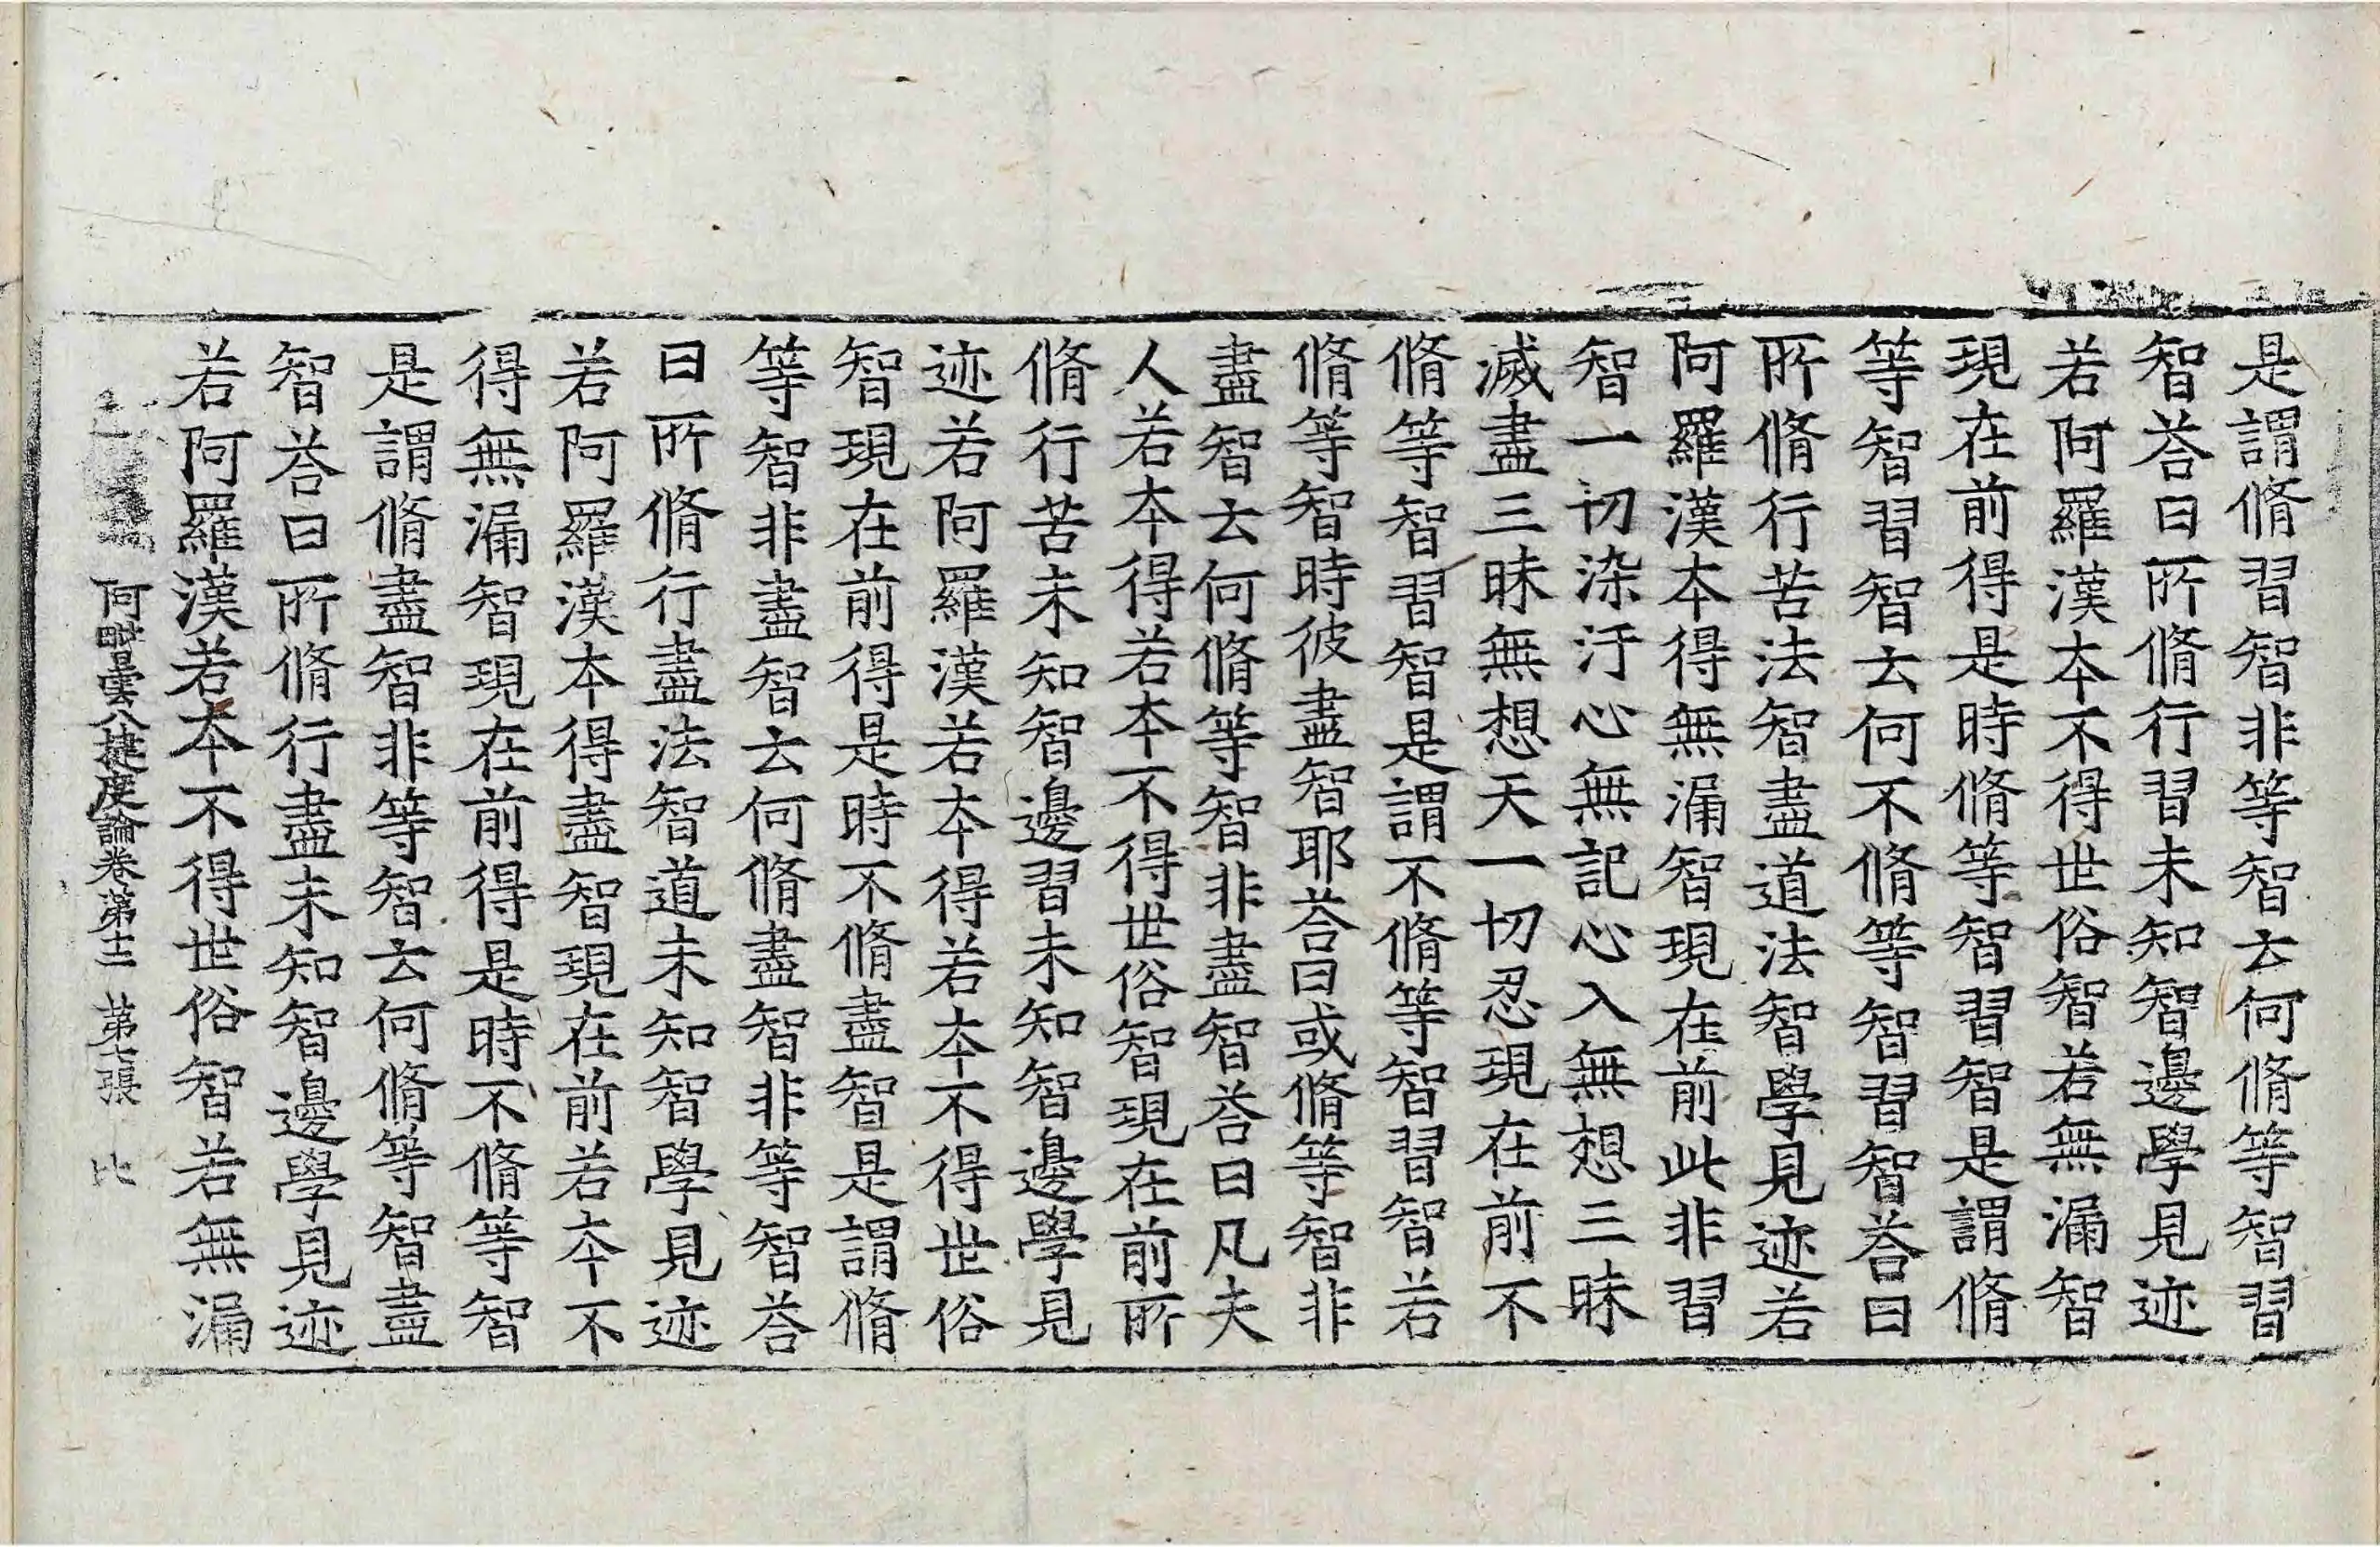 是謂脩習智非等智云何脩等智習
智荅曰所脩行習未知智邊學見迹
若阿羅漢本不得世俗智若無漏智
現在前得是時脩等智習智是謂脩
等智習智云何不脩等智習智荅曰
所脩行苦法智盡道法智學見迹若
阿羅漢本得無漏智現在前此非習
智一切染汙心無記心入無想三昧
滅盡三昧無想天一切忍現在前不
脩等智習智是謂不脩等智習智若
脩等智時彼盡智耶荅曰或脩等智非
盡智云何脩等智非盡智荅曰凡夫
人若本得若本不得世俗智現在前所
脩行苦未知智邊習未知智邊學見
迹若阿羅漢若本得若本不得世俗
智現在前得是時不脩盡智是謂脩
等智非盡智云何脩盡智非等智荅
曰所脩行盡法智道未知智學見迹
若阿羅漢本得盡智現在前若本不
得無漏智現在前得是時不脩等智
是謂脩盡智非等智云何脩等智盡
智荅曰所脩行盡未知智邊學見迹
若阿羅漢若本不得世俗智若無漏
阿毗曇八揵度論卷第十二 第七張 比